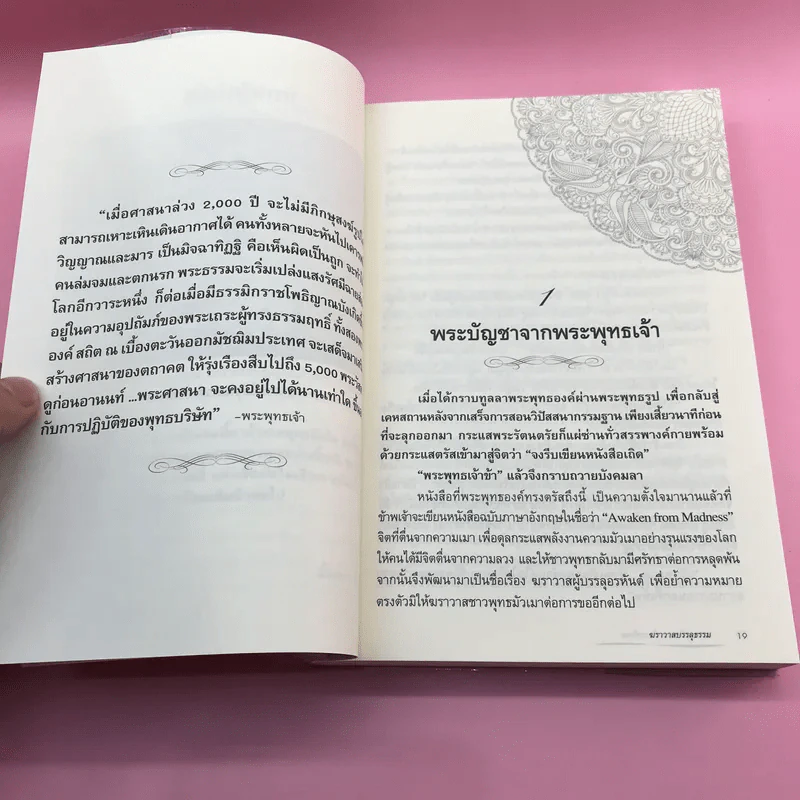 “เมื่อศาสนาล่วง 2,000 ปี จะไม่มีภิกษุสงฆ์รูปใ
สามารถเหาะเหินเดินอากาศได้ คนทั้งหลายจะหันไป
วิญญาณและมาร เป็นมิจฉาทิฏฐิ คือเห็นผิดเป็นถูก
คนล่มจมและตกนรก พระธรรมจะเริ่มเปล่งแสงรัศมี
โลกอีกวาระหนึ่ง ก็ต่อเมื่อมีธรรมิกราชโพธิญาณ
อยู่ในความอุปถัมภ์ของพระเถระผู้ทรงธรรมฤทธิ์ ทั้งสอง
องค์ สถิต ณ เบื้องตะวันออกมัชฌิมประเทศ จะเสด็จมา
สร้างศาสนาของตถาคต ให้รุ่งเรืองสืบไปถึง 5,000
ดูก่อนอานนท์ ...พระศาสนา จะคงอยู่ไปได้นานเท่าใด
กับการปฏิบัติของพุทธบริษัท” –พระพุทธเจ้า
1
พระบัญชาจากพระพุทธเจ้า
เมื่อได้กราบทูลลาพระพุทธองค์ผ่านพระพุทธรูป เพื่อกลับสู่
เคหสถานหลังจากเสร็จการสอนวิปัสสนากรรมฐาน เพียงเสี้ยวนาทีก่อน
ที่จะลุกออกมา กระแสพระรัตนตรัยก็แผ่ซ่านทั่วสรรพางค์กายพร้อม
ด้วยกระแสตรัสเข้ามาสู่จิตว่า “จงรีบเขียนหนังสือเถิด”
“พระพุทธเจ้าข้า” แล้วจึงกราบถวายบังคมลา
หนังสือที่พระพุทธองค์ทรงตรัสถึงนี้ เป็นความตั้งใจมานานแล้วที่
ข้าพเจ้าจะเขียนหนังสือฉบับภาษาอังกฤษในชื่อว่า “Awaken from Madness”
จิตที่ตื่นจากความเมา เพื่อดุลกระแสพลังงานความมัวเมาอย่างรุนแรงของโลก
ให้คนได้มีจิตตื่นจากความลวง และให้ชาวพุทธกลับมามีศรัทธาต่อการหลุดพ้น
จากนั้นจึงพัฒนามาเป็นชื่อเรื่อง ฆราวาสผู้บรรลุอรหันต์ เพื่อย้ำความหมาย
ตรงตัวมิให้ฆราวาสชาวพุทธมัวเมาต่อการขออีกต่อไป
ฆราวาสบรรลุธรรม 19